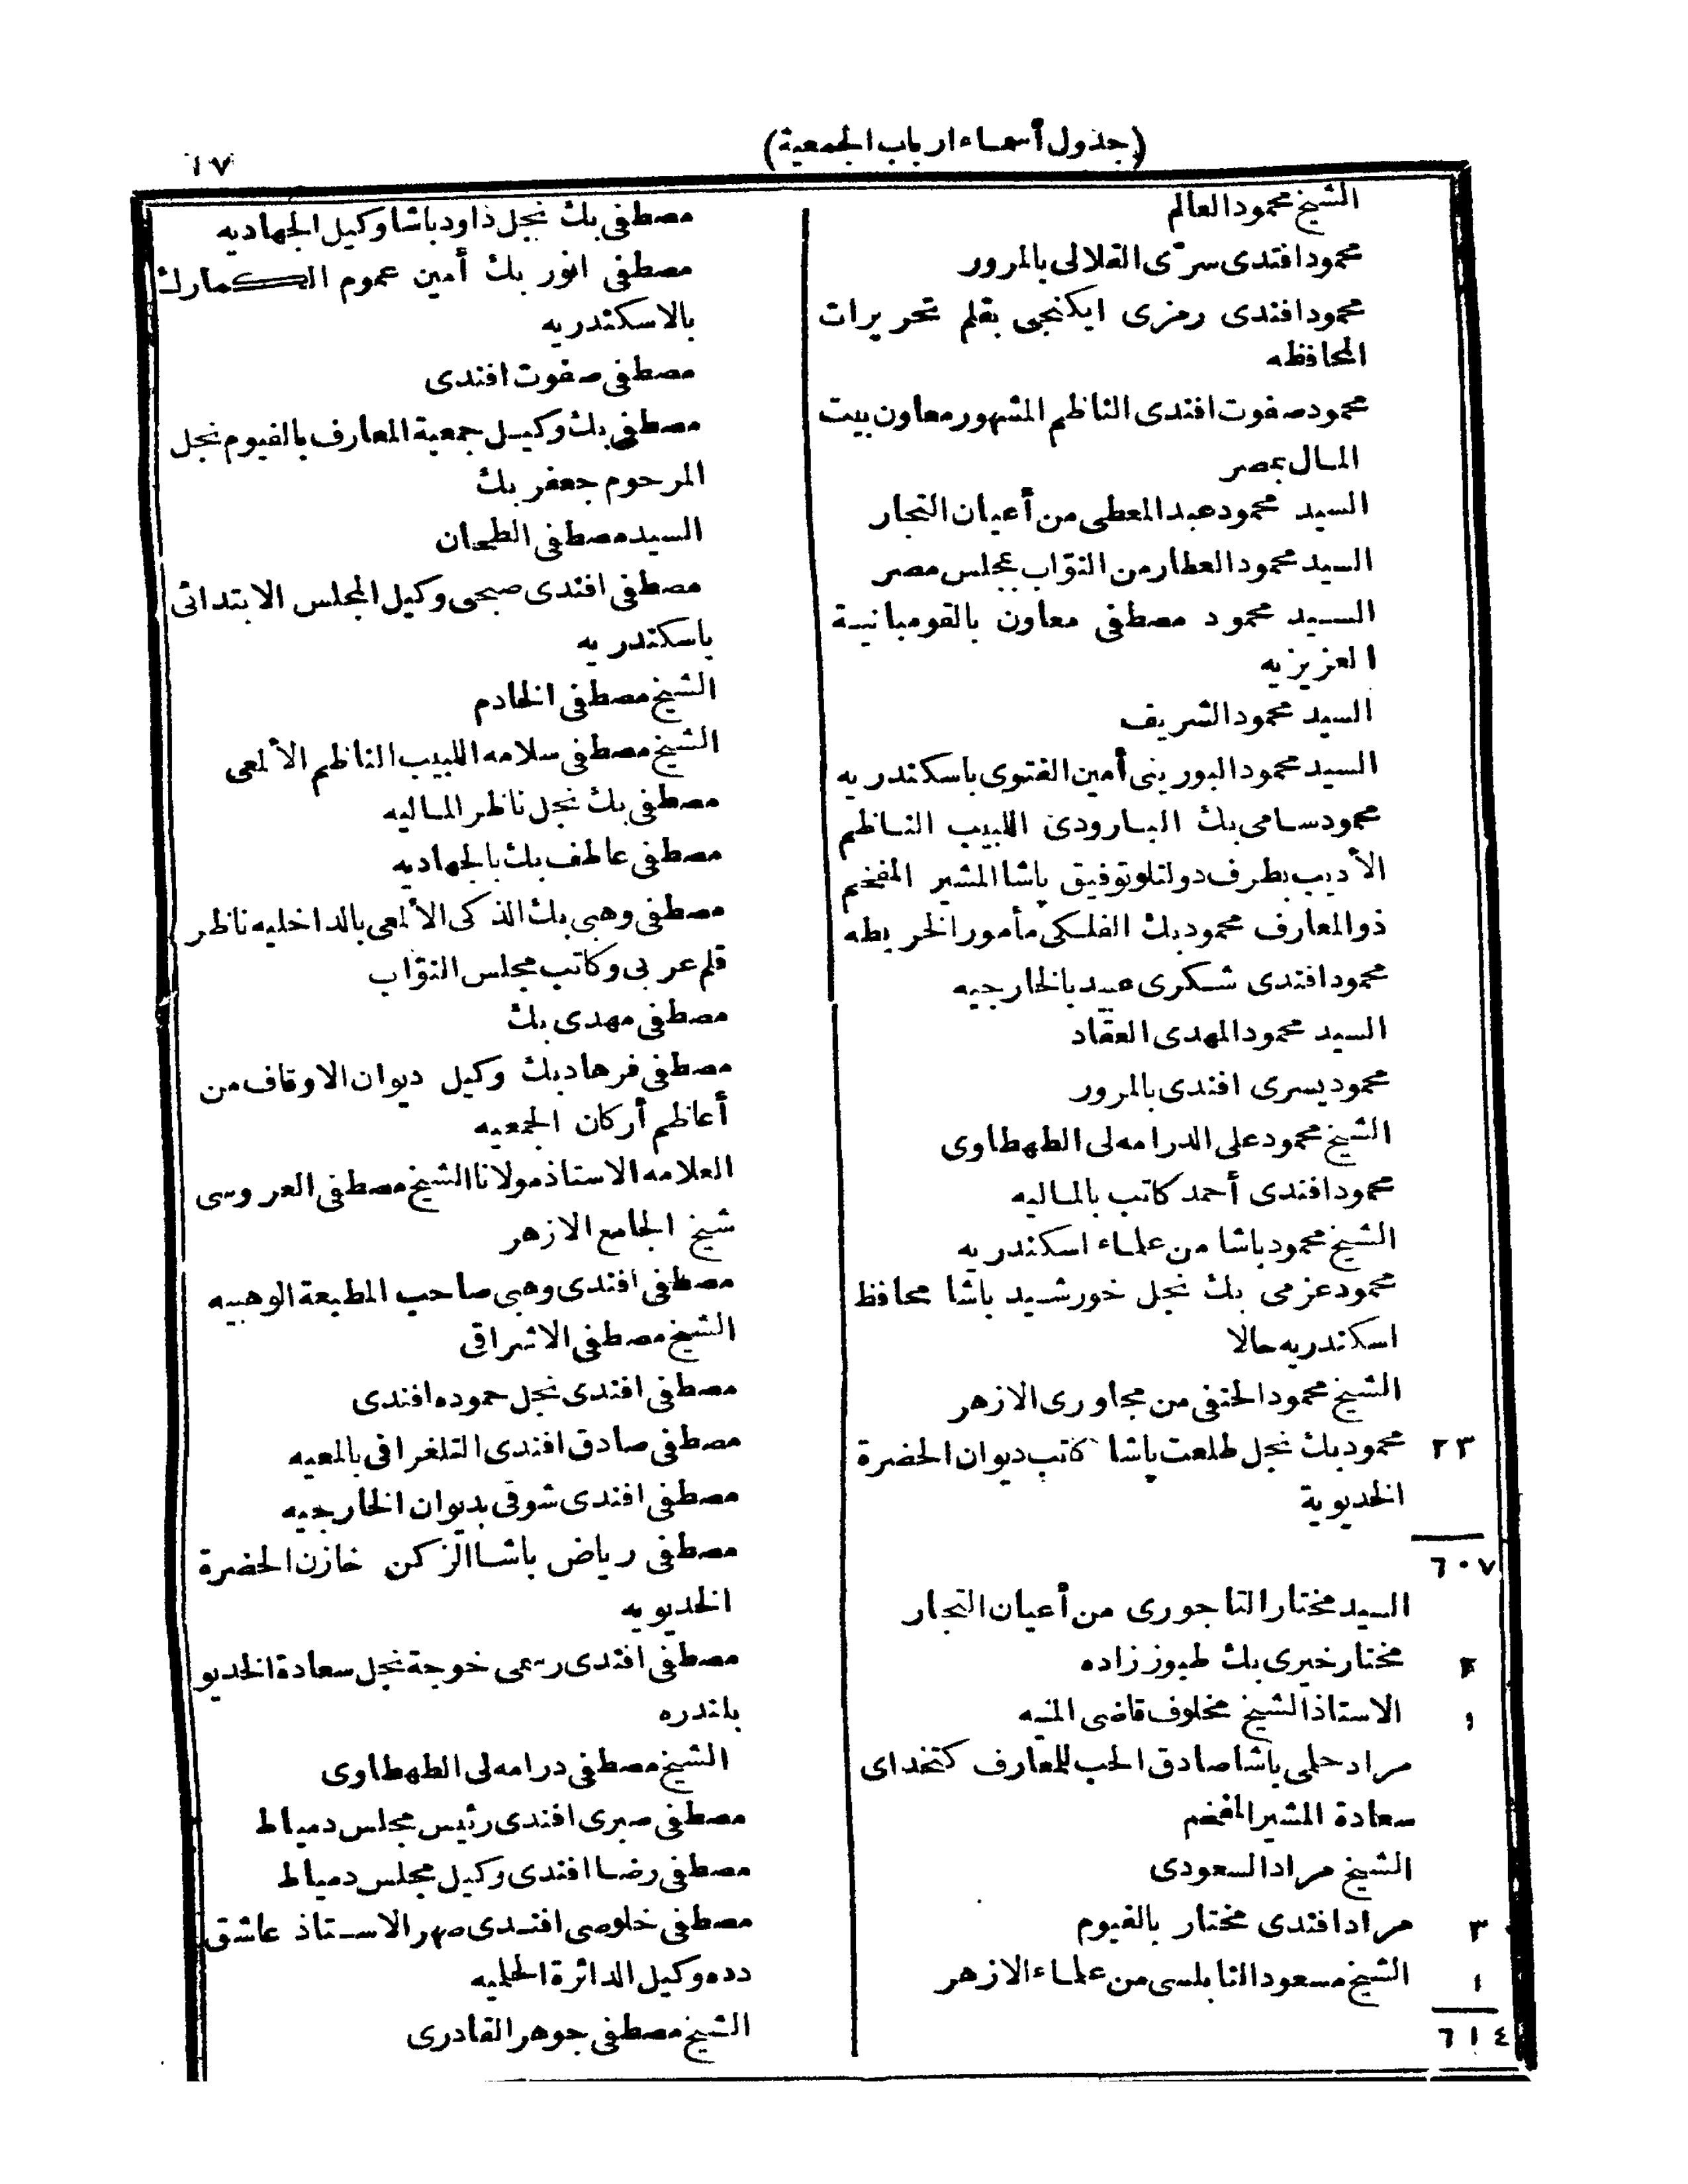 (جدول أسماء ارباب الجمعية)
١٧
الشيخ محمود العالم
محمود افندى سرّى القلالى بالمرور
محمود افندى رمزى ايكنجى بقلم تحريرات
المحافظه
محمود صفوت افندى الناظم المشهور معاون بيت
المال بمصر
السيد محمود عبد المعطى من أعيان التجار
السيد محمود العطار من النوّاب بمجلس مصر
السيد محمود مصطفى معاون بالقومبانية
العزيزيه
السيد محمود الشريف
السيد محمود البورينى أمين الفتوى باسكندريه
محمود سامى بك البارودى اللبيب الناظم
الأديب بطرف دولتلو توفيق باشا المشير المفخم
ذو المعارف محمود بك الفلكى مأمور الخريطه
محمود افندى شكرى عبيد بالخارجيه
السيد محمود المهدى العقاد
محمود يسرى افندى بالمرور
الشيخ محمود على الدرامه لى الطهطاوى
محمود افندى أحمد كاتب بالماليه
الشيخ محمود باشا من علماء اسكندريه
محمود عزمى بك نجل خورشيد باشا محافظ
اسكندريه حالا
الشيخ محمود الحنفى من مجاورى الازهر
٢٣ محمود بك نجل طلعت باشا كاتب ديوان الحضرة
الخديوية
٦٠٧
السيد مختار التاجورى من أعيان التجار
٢ مختار خيرى بك طبوز زاده
١ الاستاذ الشيخ مخلوف قاضى المنيه
مراد حلمى باشا صادق الحب للمعارف كتخداى
سعادة المشير المفخم
الشيخ مراد السعودى
٣ مراد افندى مختار بالفيوم
١ الشيخ مسعود النابلسى من علماء الازهر
٦١٤
مصطفى بك نجل داود باشا وكيل الجهاديه
مصطفى انور بك أمين عموم الكمارك
بالاسكندريه
مصطفى صفوت افندى
مصطفى بك وكيل جمعية المعارف بالفيوم نجل
المرحوم جعفر بك
السيد مصطفى الطحان
مصطفى افندى صبحى وكيل المجلس الابتدائى
باسكندريه
الشيخ مصطفى الخادم
الشيخ مصطفى سلامه اللبيب الناظم الألمعى
مصطفى بك نجل ناظر الماليه
مصطفى عاطف بك بالجهاديه
مصطفى وهبى بك الذكى الألمعى بالداخليه ناظر
قلم عربى وكاتب مجلس النوّاب
مصطفى مهدى بك
مصطفى فرهاد بك وكيل ديوان الاوقاف من
أعاظم أركان الجمعيه
العلامه الاستاذ مولانا الشيخ مصطفى العروسى
شيخ الجامع الازهر
مصطفى افندى وهبى صاحب المطبعة الوهبيه
الشيخ مصطفى الاشراقى
مصطفى افندى نجل حموده افندى
مصطفى صادق افندى التلغرافى بالمعيه
مصطفى افندى شوقى بديوان الخارجيه
مصطفى رياض باشا الزكن خازن الحضرة
الخديويه
مصطفى افندى رسمى خوجة نجل سعادة الخديو
بلندره
الشيخ مصطفى درامه لى الطهطاوى
مصطفى صبرى افندى رئيس مجلس دمياط
مصطفى رضا افندى وكيل مجلس دمياط
مصطفى خلوصى افندى صهر الاستاذ عاشق
دده وكيل الدائرة الحلميه
الشيخ مصطفى جوهر القادرى